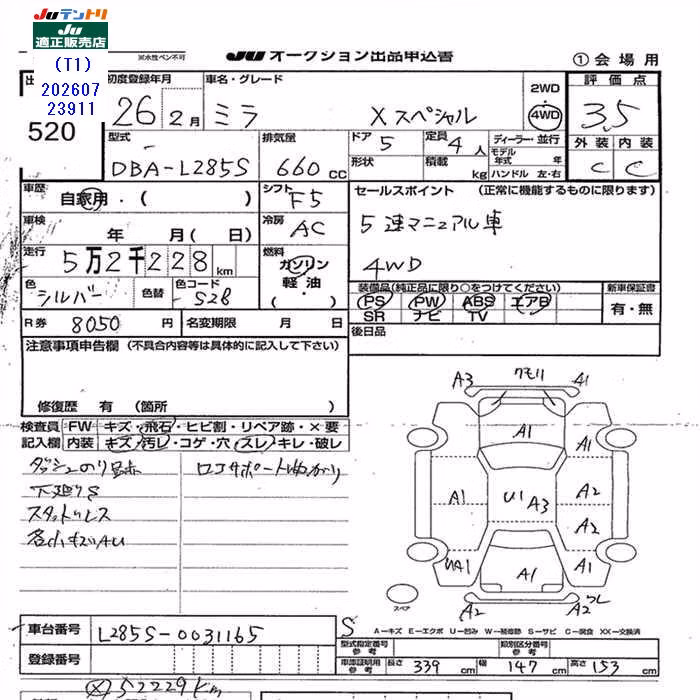 JUテントリ
JU
適正販売店
(T1)
202607
23911
520
※水性ペン不可
JU オークション出品申込書
① 会場用
初度登録年月
26 2月
車名・グレード
ミラ Xスペシャル
2WD
4WD
評価点
3.5
外装 内装
C C
型式
DBA-L285S
排気量
660 CC
ドア 5
形状
定員 4 人
積載 kg
ディーラー・並行
モデル年式 年
ハンドル 左・右
車歴
自家用・( )
シフト
F5
セールスポイント (正常に機能するものに限ります)
5速マニュアル車
4WD
車検
年 月( 日)
冷房
AC
走行
5万2千228 km
燃料
ガソリン
軽油
色
シルバー
色替
色コード
S28
装備品(純正品に限り○をつけてください)
PS PW ABS エアB
SR ナビ TV
新車保証書
有・無
R券 8050 円
名変期限 月 日
後日品
注意事項申告欄 (不具合内容等は具体的に記入して下さい)
修復歴 有 (箇所 )
検査員 FW キズ・飛石・ヒビ割・リペア跡・×要
記入欄 内装 キズ・汚レ・コゲ・穴・スレ・キレ・破レ
ダッシュのり跡
下廻りS
スタットレス
各小キズAU
A3 クモリ A1
A1
A1
A1 U1 A3 A2
A2
UA1 A1 A1
A2 A2
スペア
車台番号 L285S-0031165
登録番号
S
A—キズ E—エクボ U—凹み W—補修跡 S—サビ C—腐食 XX—交換済
型式指定番号 参考
類別区分番号 参考
車庫証明用 参考 長さ 339 cm 幅 147 cm 高さ 153 cm
52229km